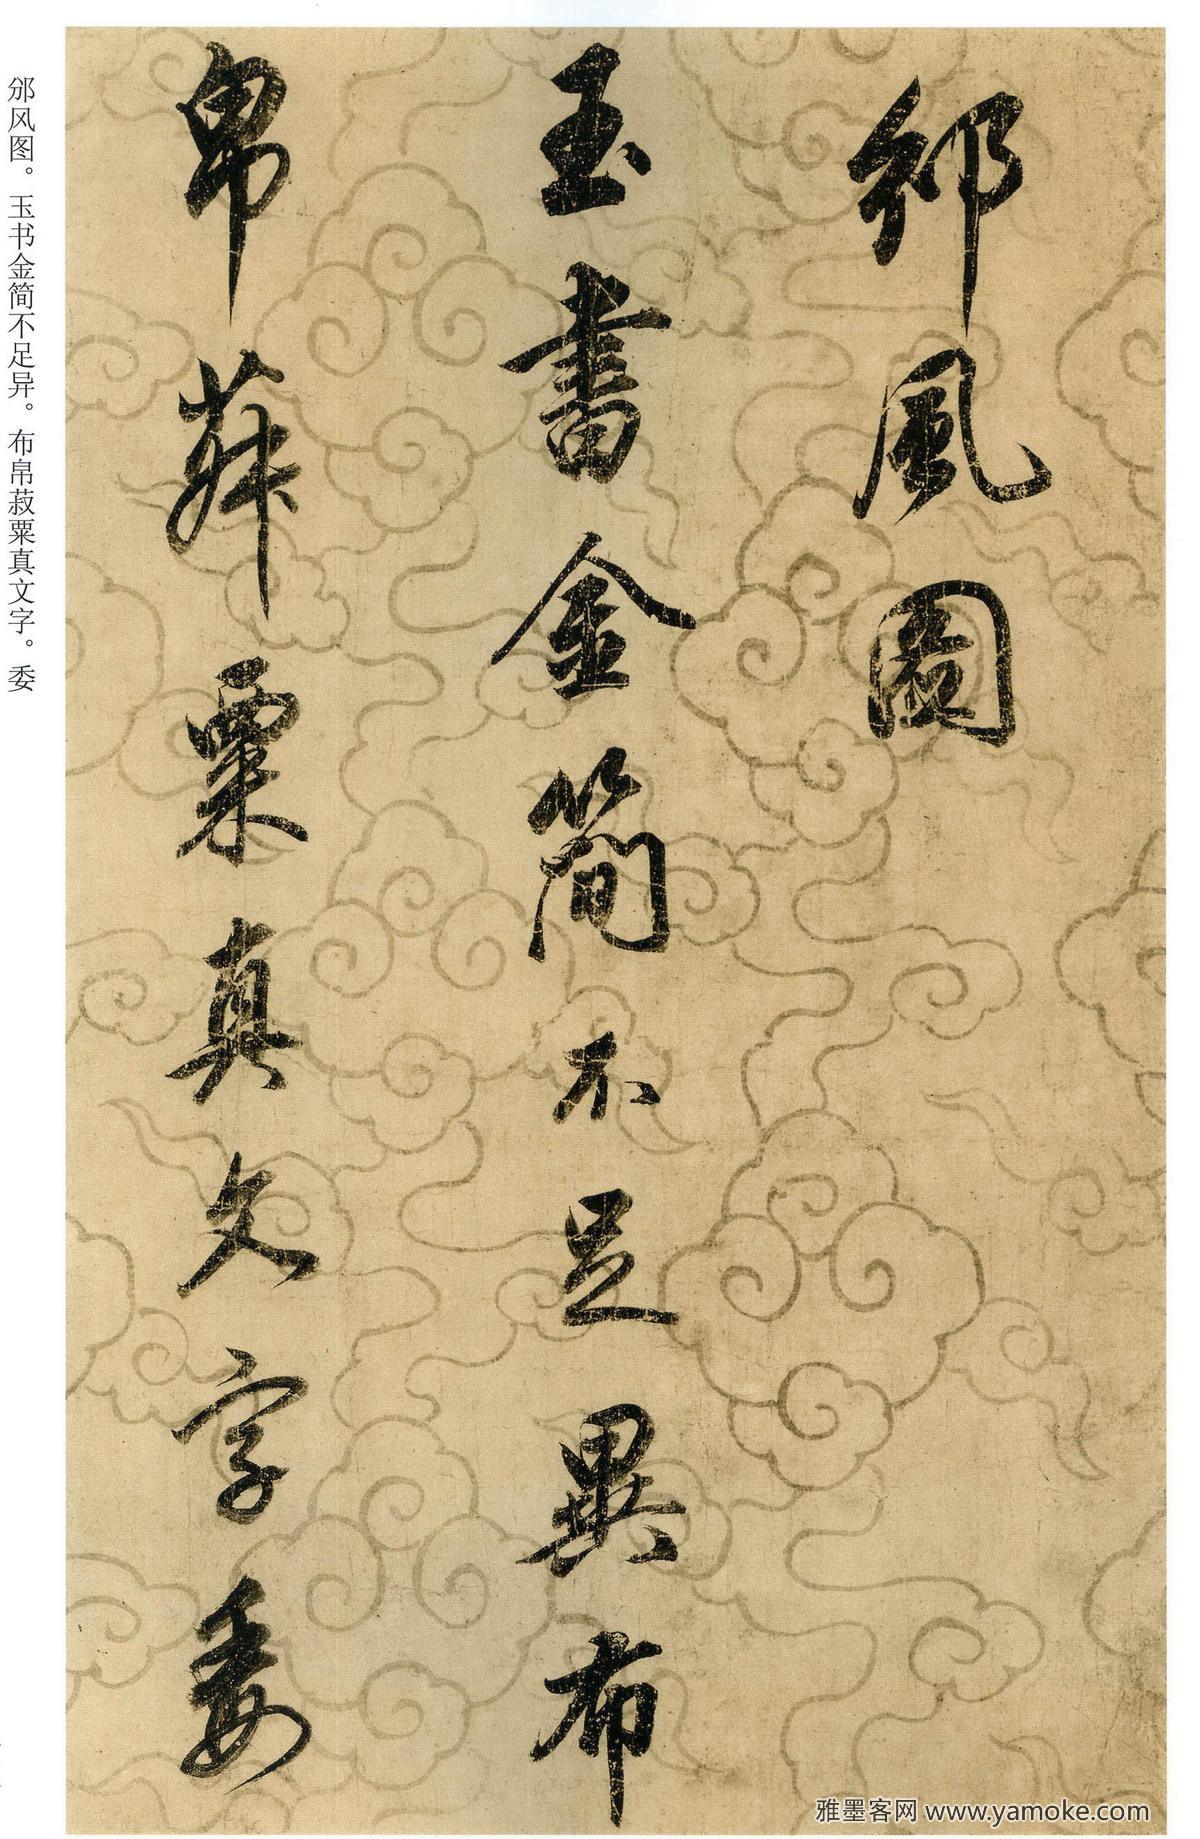 邠風圖
玉書金簡不足異布
帛菽粟真文字委
邠风图。玉书金简不足异。布帛菽粟真文字。委
雅墨客网 www.yamoke.com